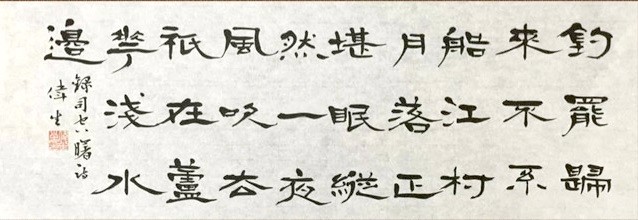 釣罷歸
來不系
船江村
月落正
堪眠縱
然一夜
風吹去
祇在蘆
花淺水
邊
錄司空曙詩
偉生